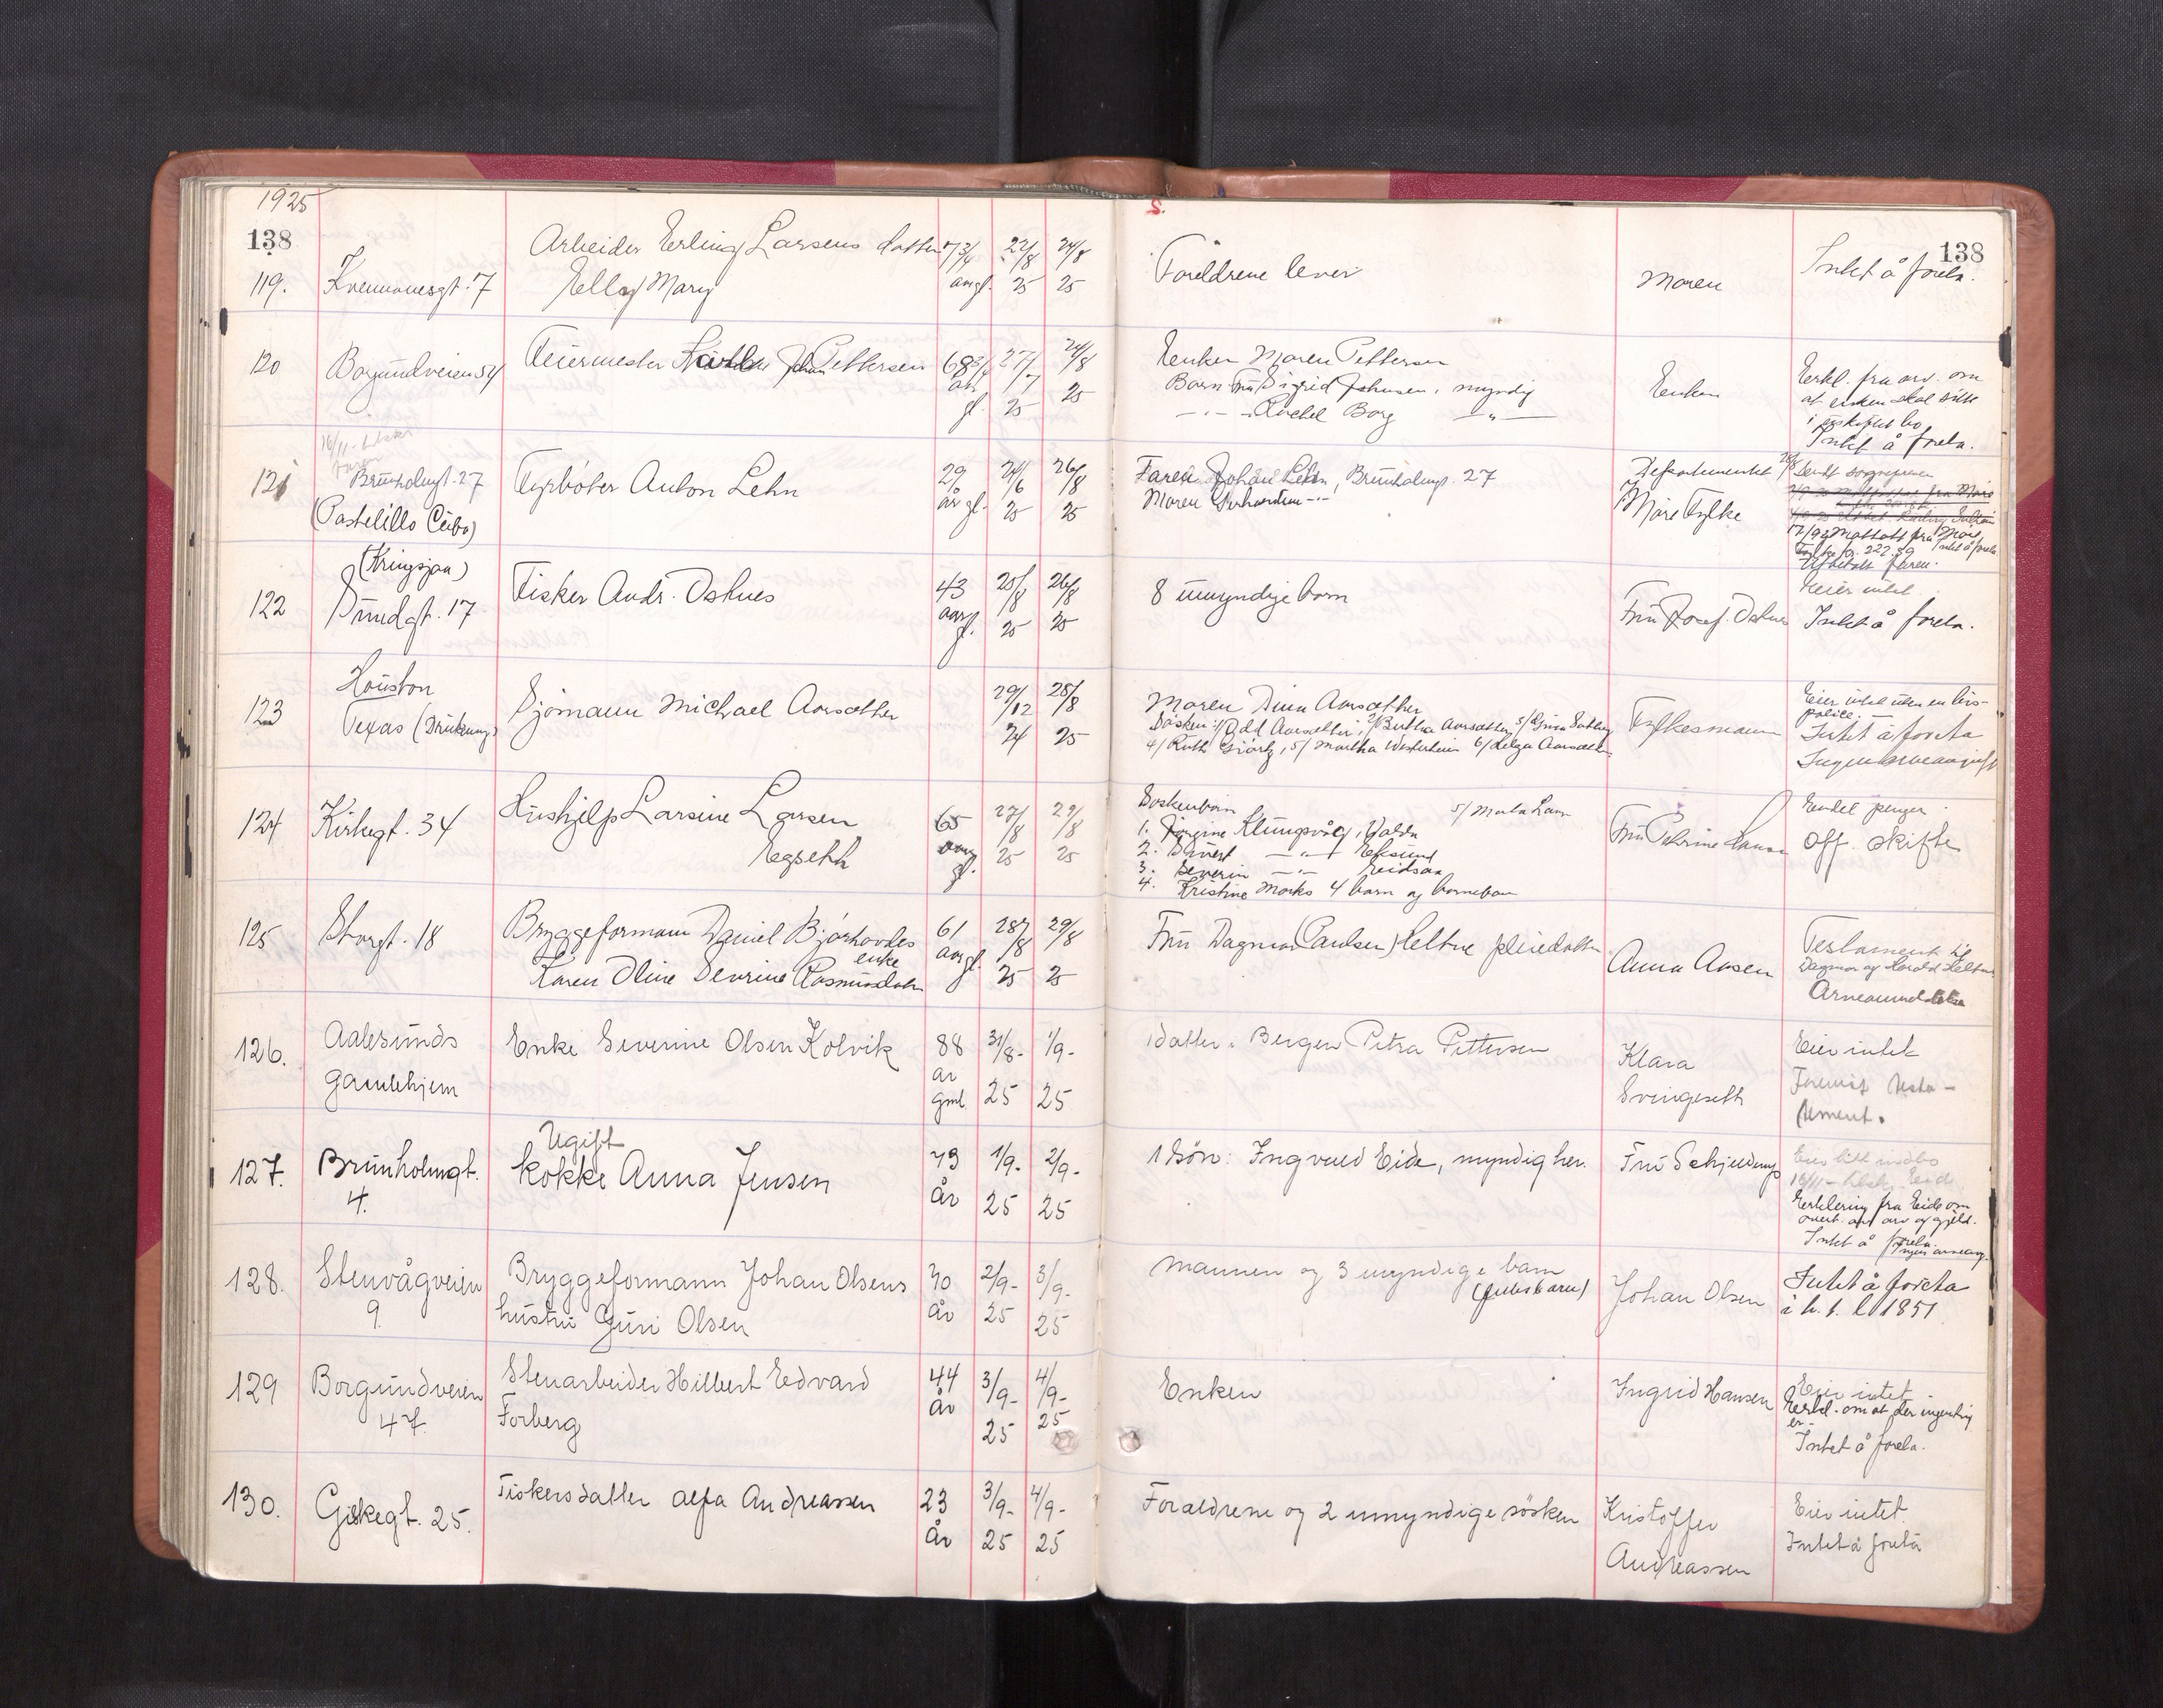 1925
138
138
119. Kvennavesgt. 7
Arbeider Erling Larsens datter
Elly Mary
7 3/4 aar gl. 22/8 25 24/8 25
Foreldrene lever
Moren
Intet å foreta.
120 Borgundveien 54
Feiermester Johan Pettersen
68 3/4 år gl. 27/7 25 24/8 25
Enken Maren Pettersen
Barn: Fru Sigrid Johnsen, myndig
Rachel Borg
Enken
Erkl. fra arv. om
at enken skal sitte
i uskiftet bo
Intet å foreta.
16/11
faren
121 Brunholmgt. 27
(Pastelillo Cuba)
Fyrbøter Anton Lehn
29 år gl. 24/6 25 26/8 25
Faren Johan Lehn, Brunholmgt. 27
Moren
Departementet
Møre Fylke
Sendt
17/9 25 Mottatt fra Møre
Fylke kr. 222.59 Intet å foreta
Utbetalt faren.
122 (Kringsjaa)
Sundgt. 17
Fisker Andr. Oshues
43 aar gl. 25/8 25 26/8 25
8 umyndige barn
Fru Josef. Oshues
Eeier intet
Intet å foreta.
123 Houston
Texas (Drukning)
Sjømann Michael Aarsæther
29/12 24 28/8 25
Moren Dina Aarsæther
Søsken: 1/ Odd Aarsæther, 2/ Bertha Aarsæther,
4/ Ruth 5/ Martha Westerheim 6/ Helga Aarsæther
Fylkesmann
Eier intet uten en livs-
police.
Intet å foreta
124 Kirkegt. 34
Hushjelp Larsine Larsen
Egseth
65 aar gl. 27/8 25 29/8 25
Søskenbarn
1. Jørgine Klungsvåg, Valdø
2. Sivert
3. Severin Eidsaa
4. Kristine Morks 4 barn og barnebarn
Endel penger
Off. skifte
125 Storgt. 18
Bryggeformann Daniel Bjørhovdes
enke
Karen Oline Severine Rasmusdatter
61 aar gl. 28/8 25 29/8 25
Fru Dagmar (Paulsen) Heltne pleiedatter
Anna Aasen
Testament til
Dagmar og Harald Heltne
126. Aalesunds
gamlehjem
Enke Severine Olsen Kolvik
88 år gml. 31/8- 25 1/9- 25
1 datter i Bergen Petra Pettersen
Klara
Svingeseth
Eier intet
Forevist testa-
tement.
127. Brunholmgt.
4.
Ugift
kokke Anna Jensen
79 år 1/9- 25 2/9- 25
1 søn: Ingvald Eide, myndig her.
Fru Schjelderup
Eier litt indbo
16/11 -
Erklering fra Eide om
overt. av arv og gjeld.
Intet å foreta.
128. Stenvågveien
9.
Bryggeformann Johan Olsens
hustru Guri Olsen
70 år 2/9- 25 3/9- 25
Mannen og 3 myndige barn
Johan Olsen
Intet å foreta
i h. t. l 1851
129 Borgundveien
47.
Stenarbeider Hilbert Edvard
Forberg
44 år 3/9- 25 4/9- 25
Enken
Ingrid Hansen
Eier intet
Erkl. om at der ingenting
er-
Intet å foreta.
130. Giskegt. 25.
Fiskersdatter Alfa Andreassen
23 år 3/9- 25 4/9- 25
Foraeldrene og 2 umyndige søsken
Kristoffer
Andreassen
Eier intet.
Intet å foreta